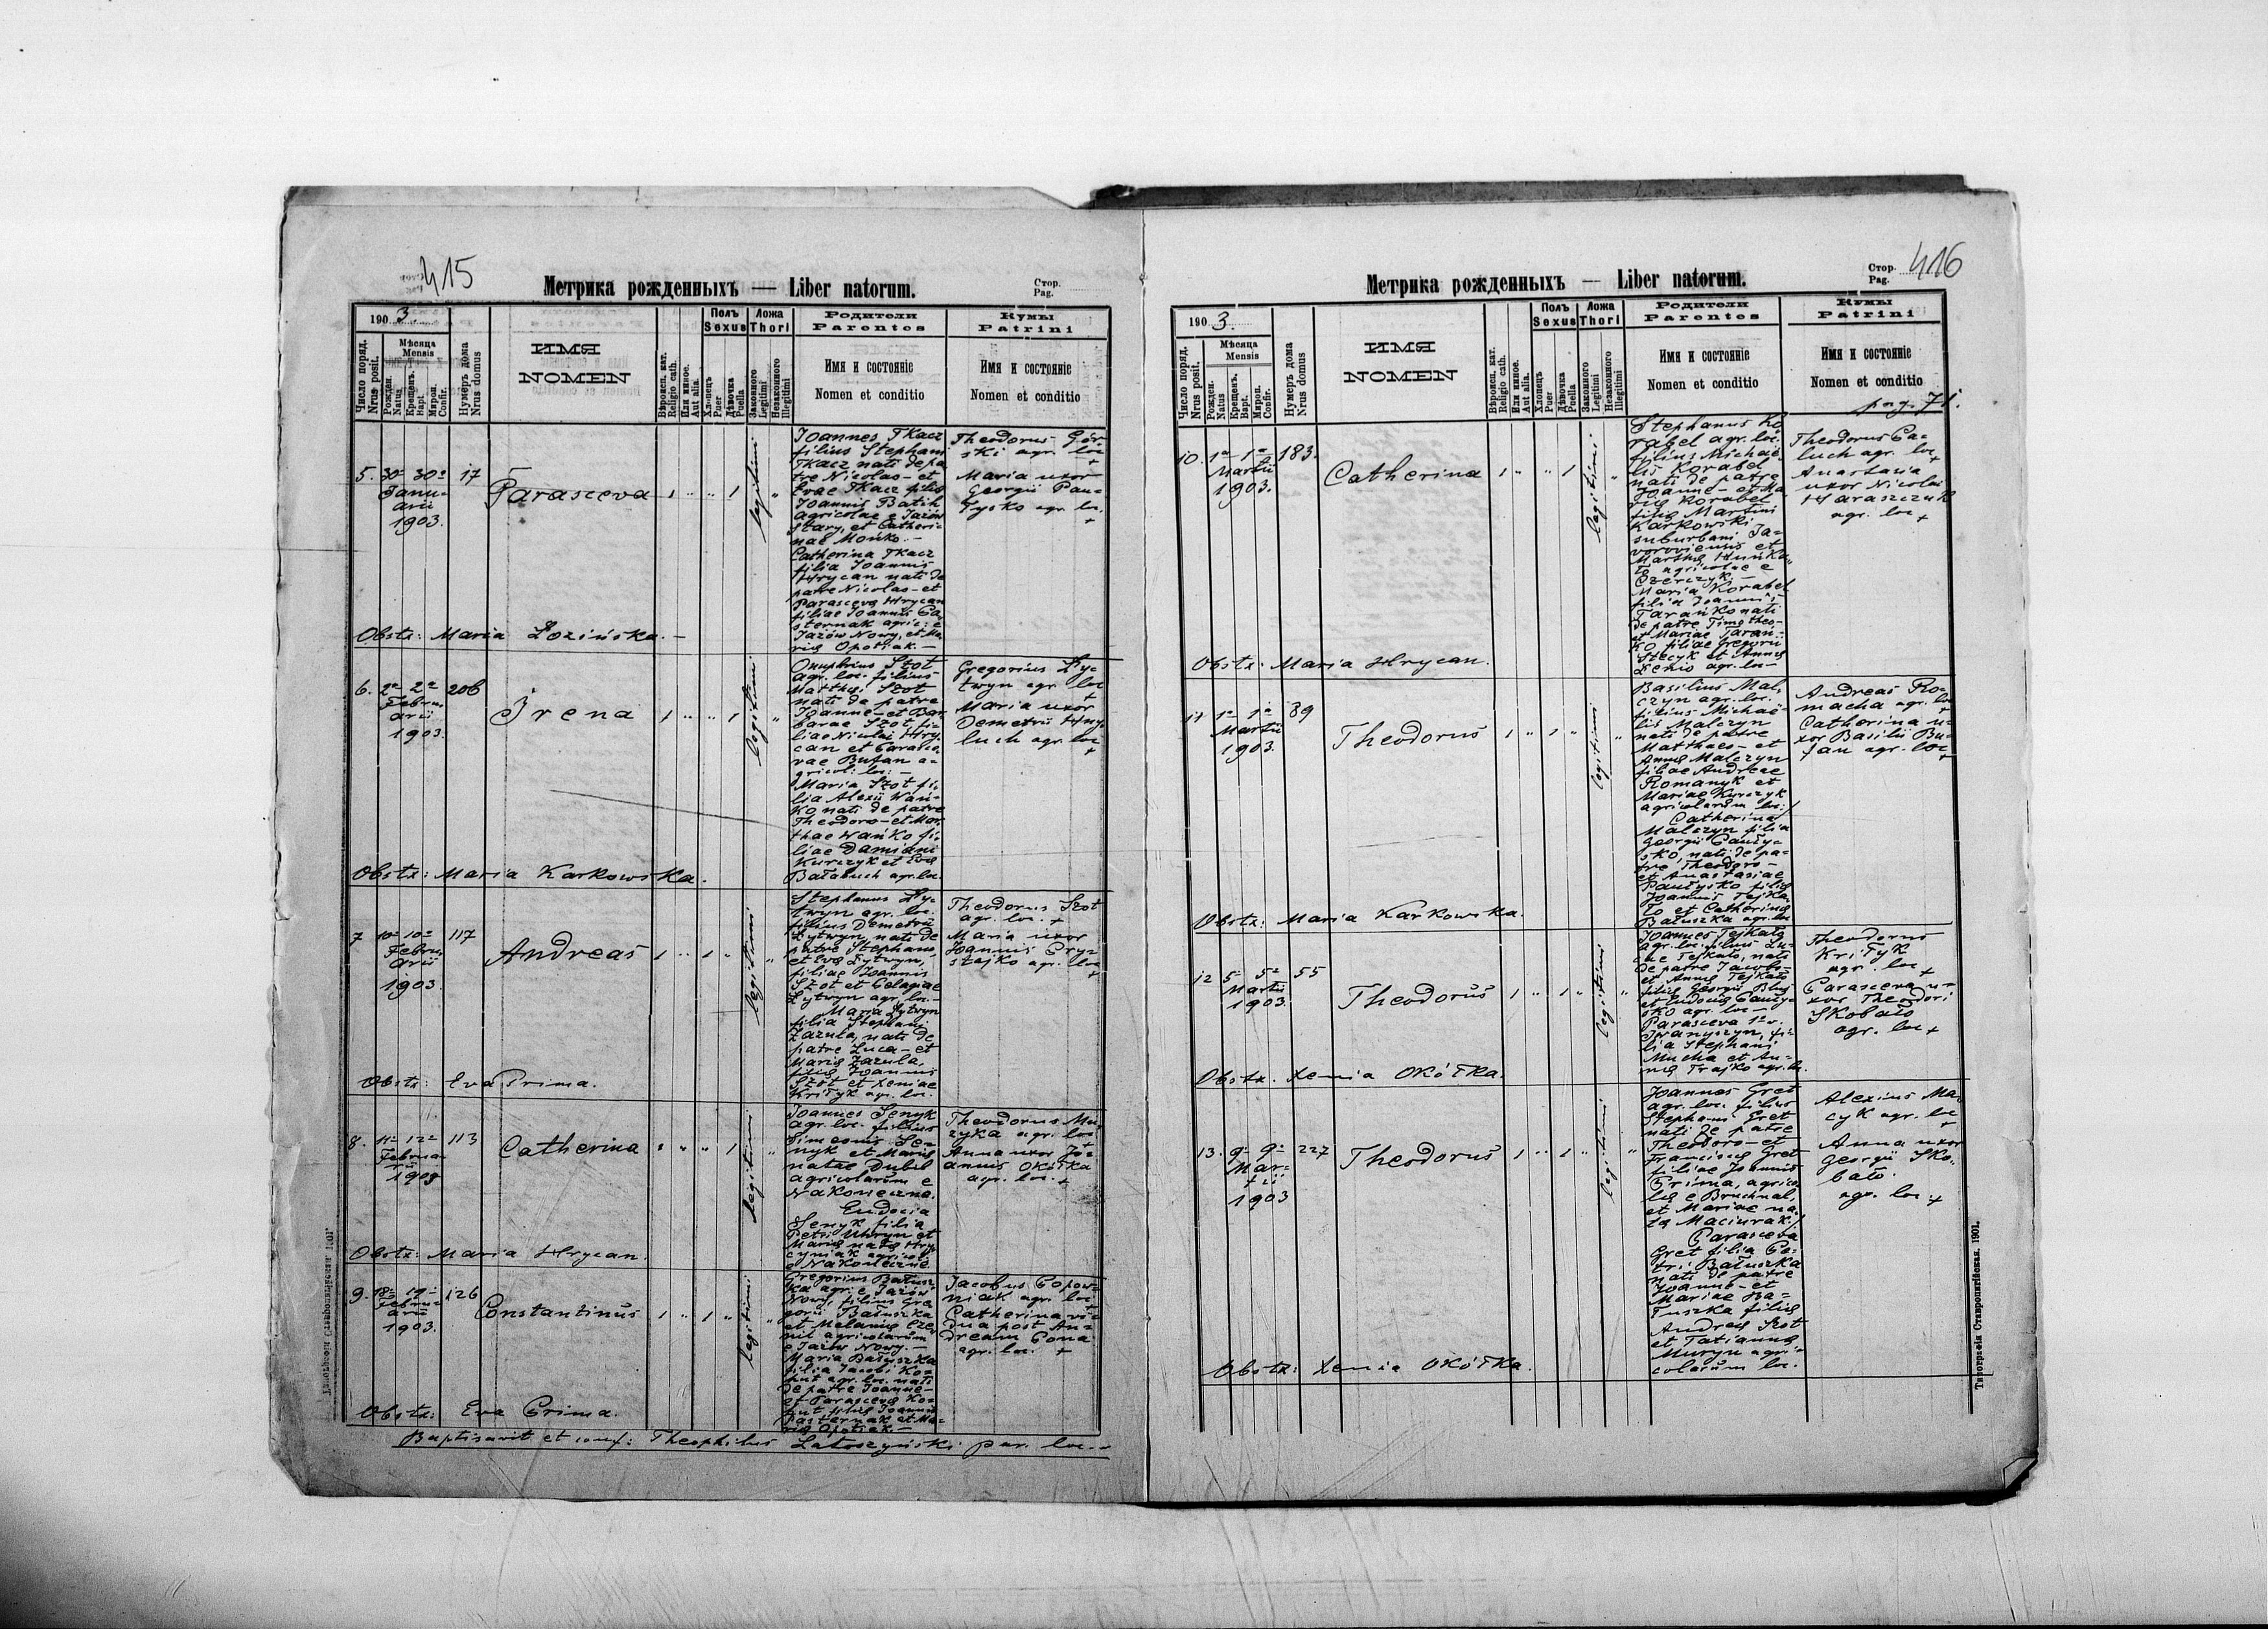 415
Метрика рожденныхъ — Liber natorum.
Стор.
Pag.
190 3
Число поряд.
Nrus posit.
Мѣсяца
Mensis
Рожден.
Natus
Крещенъ.
Bapt.
Миров.
Confir.
Нумеръ дома
Nrus domus
ИМЯ
NOMEN
Вѣроисп. кат.
Religio cath.
Или иное.
Aut alia.
Полъ
Sexus
Хлопецъ
Puer
Дѣвочка
Puella
Ложа
Thori
Законного
Legitimi
Незаконного
Illegitimi
Родители
Parentes
Имя и состояніе
Nomen et conditio
Кумы
Patrini
Имя и состояніе
Nomen et conditio
5. 30a 30a 17
Janu-
arii
1903.
Parasceva 1 " " 1 legitimi "
Joannes Tkacz
filius Stephani
Tkacz nati de pa
tre Nicolao - et
Evae Tkacz filiae
Joannis Batih
agricolae e Jazów
stary, et Catheri-
nae Mońko. -
Catherina Tkacz
filia Joannis
Hrycan nati de
patre Nicolao - et
Parasceva Hrycan
filiae Joannis Pa
sternak agric: e
Jazów Nowy, et Ma
riae Opotiak. -
Theodorus Gór
ski agr. loc
+
Maria uxor
Georgii Pau-
łysko agr. loc.
+
Obstx: Maria Łozińska. -
6. 2a 2a 206
Febru
arii
1903.
Irena 1 " " 1 legitimi "
Onuphrius Szot
agr. loc. filius
Matthei Szot
nati de patre
Joanne - et Bar
barae Szot fi-
liae Nicolai Hry
can et Parasce
vae Bufan a-
gricol: loc: -
Maria Szot fi-
lia Alexii Wań-
ko nati de patre
Theodoro - et Mar
thae Wańko fi-
liae Damiani
Kurczyk et Evae
Bałabuch agr. loc.
Gregorius Ły-
twyn agr. loc
+
Maria uxor
Demetrii Hny
luch agr. loc
+
Obstx: Maria Karkowska.
7 10a 10a 117
Febru
arii
1903.
Andreas 1 " 1 " legitimi "
Stephanus Ły-
twyn agr. loc.
filius Demetrii
Łytwyn, nati de
patre Stephano
et Eva Łytwyn,
filiae Joannis
Szot et Pelagiae
Łytwyn agr. loc. -
Maria Łytwyn
filia Stephani
Zazula, nati de
patre Luca - et
Maria Zazula,
filiae Joannis
Szot et Xeniae
Krityk agr. loc.
Theodorus Szot
agr. loc. +
Maria uxor
Joannis Pryj-
stajko agr. loc
+
Obstx: Eva Prima.
8. 11a 12a 113
Februa
rii
1903
Catherina 1 " " 1 legitimi "
Joannes Senyk
agr. loc. filius
Simeonis Se-
nyk et Mariae
natae Dubil
agricolarum e
Nakoneczne.
Eudocia
Senyk filia
Petri Uhryn et
Mariae nata Hry
cyniak agricol
e Nakoneczne
Theodorus Mu
zyka agr. loc
+
Anna uxor Jo-
annis Okółka
agr. loc. +
Obstx: Maria Hrycan.
9. 18a 19a 126
Febru-
arii
1903.
Constantinus 1 " 1 " legitimi "
Gregorius Batusz
ka agr. e Jazów
Nowy, filius Gre
gorii Batuszka
et Melaniae Cze
nil agricolarum
e Jazów Nowy. -
Maria Batuszka
filia Jacobi Ko-
put agr. loc. nati
de patre Joanne -
et Parasceva Ko-
put filiae Joannis
Pasternak et Ma-
riae Opotiak. -
Jacobus Popow-
niak agr. loc
Catherina vi-
dua post An-
dream Pona
agr. loc. +
Obstx: Eva Prima.
Baptisavit et conf: Theophilus Łatoszyński par. loc. -
416
Метрика рожденныхъ — Liber natorum.
Стор.
Pag.
190 3.
Число поряд.
Nrus posit.
Мѣсяца
Mensis
Рожден.
Natus
Крещенъ.
Bapt.
Миров.
Confir.
Нумеръ дома
Nrus domus
ИМЯ
NOMEN
Вѣроисп. кат.
Religio cath.
Или иное.
Aut alia.
Полъ
Sexus
Хлопецъ
Puer
Дѣвочка
Puella
Ложа
Thori
Законного
Legitimi
Незаконного
Illegitimi
Родители
Parentes
Имя и состояніе
Nomen et conditio
Кумы
Patrini
Имя и состояніе
Nomen et conditio
pag. 71.
10. 1a 1a 183.
Martii
1903.
Catherina 1 " " 1 legitimi "
Stephanus Ko
rabel agr. loc.
filius Michae
lis Korabel
nati de patre
Joanne - et Ma
ria Korabel
filiae Martini
Karkowski
suburbani Ja-
voroviensis et
Marthae Huńka
to agricolae e
Czerczyk. -
Maria Korabel
filia Joannis
Tarańko nati
de patre Timotheo -
et Mariae Tarań-
ko filiae Gregorii
Stecyk et Annae
Senio agr. loc -
Theodorus Pa-
luch agr. loc
+
Anastasia
uxor Nicolai
Haraszczuk
agr. loc +
Obstx: Maria Hrycan.
11 1a 1a 89
Martii
1903.
Theodorus 1 " 1 " legitimi "
Basilius Mal-
czyn agr. loc.
filius Michaë
lis Malczyn
nati de patre
Matthaeo - et
Annae Malczyn
filiae Andreae
Romanyk et
Mariae Kurczyk
agricolarum loc:/
Catherina
Malczyn filia
Georgii Pauły-
sko, nati de pa-
tre Theodoro -
et Anastasiae
Paułysko filiae
Joannis Tejka
to et Catherinae
Batuszka agr. loc
Andreas Ro-
macha agr. loc
+
Catherina u-
xor Basilii Bu-
fan agr. loc
+
Obstx: Maria Karkowska.
12 5a 5a 55
Martii
1903.
Theodorus 1 " 1 " legitimi "
Joannes Tejkało
agr. loc. filius Lu-
cae Tejkało, nati
de patre Jacobo -
et Annae Tejkało
filiae Georgii Bluj
et Eudociae Pauły-
sko agr. loc -
Parasceva 1o v.
Iwanyszyn, fi-
lia Stephani
Mucha et An-
nae Trajko agr. loc.
Theodorus
Krityk
agr. loc +
Parasceva u-
xor Theodori
Skobało
agr. loc +
Obstx. Xenia Okółka.
13. 9a 9a 227
Mar-
tii
1903
Theodorus 1 " 1 " legitimi "
Joannes Gret
agr. loc. filius
Stephani Gret
nati de patre
Theodoro - et
Franciscae Gret
filiae Joannis
Prima, agrico
lae e Bruchnal,
et Mariae na-
ta Maciurak./
Parasceva
Gret filia Pe-
tri Batuszka
nati de patre
Joanne - et
Mariae Ba-
tuszka filiae
Andreae Szot
et Tatiannae
Muryn agri-
colarum loc.
Alexius Ma-
cyk agr. loc
+
Anna uxor
Georgii Sko-
bało
agr. loc +
Obstx: Xenia Okółka.
Типографія Ставропигійская. 1901.